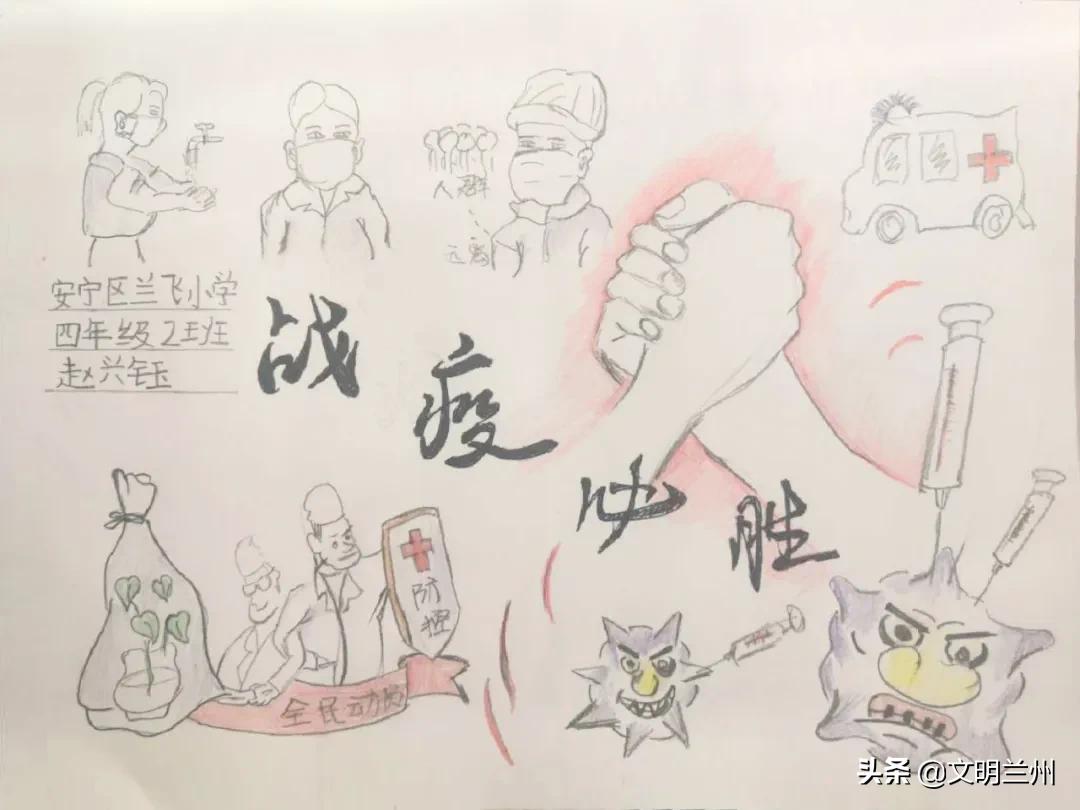 人群
远离
安宁区兰飞小学
四年级2班
赵兴钰
战疫必胜
防控
全民动员
头条 @文明兰州